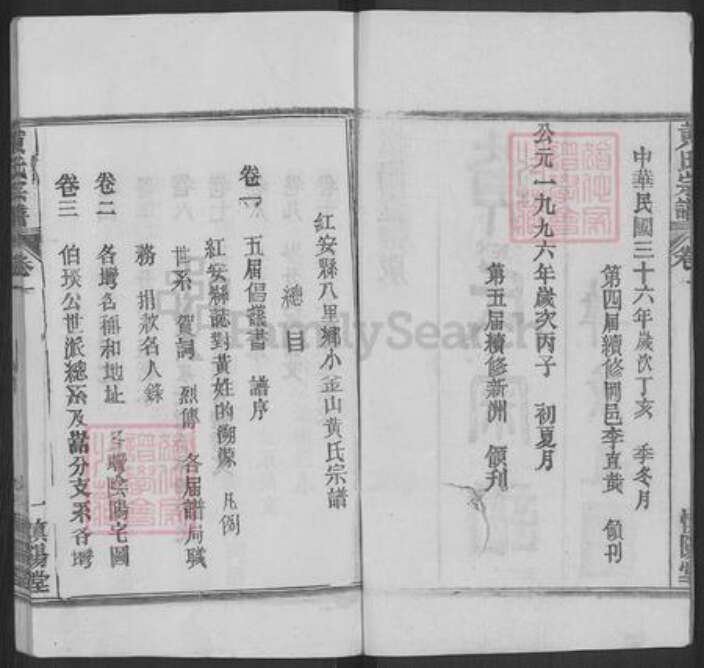 中華民國三十六年歲次丁亥 季冬月
第四届續修岡邑李直黃 領刊
公元一九九六年歲次丙子 初夏月
第五届續修新洲 領刊
黄氏宗譜 卷一
慎陽堂
紅安縣八里鄉小金山黄氏宗譜
總目
卷一、五届倡議書 譜序
紅安縣誌對黄姓的溯源 凡例
世系 賀詞 烈傳 各届譜局職
務 捐款名人錄
卷二 各塆名稱和地址 各塆陰陽宅圖
卷三 伯琰公世派總系及當分支系各塆
黄氏宗譜 卷一
一 慎陽堂
FamilySearch